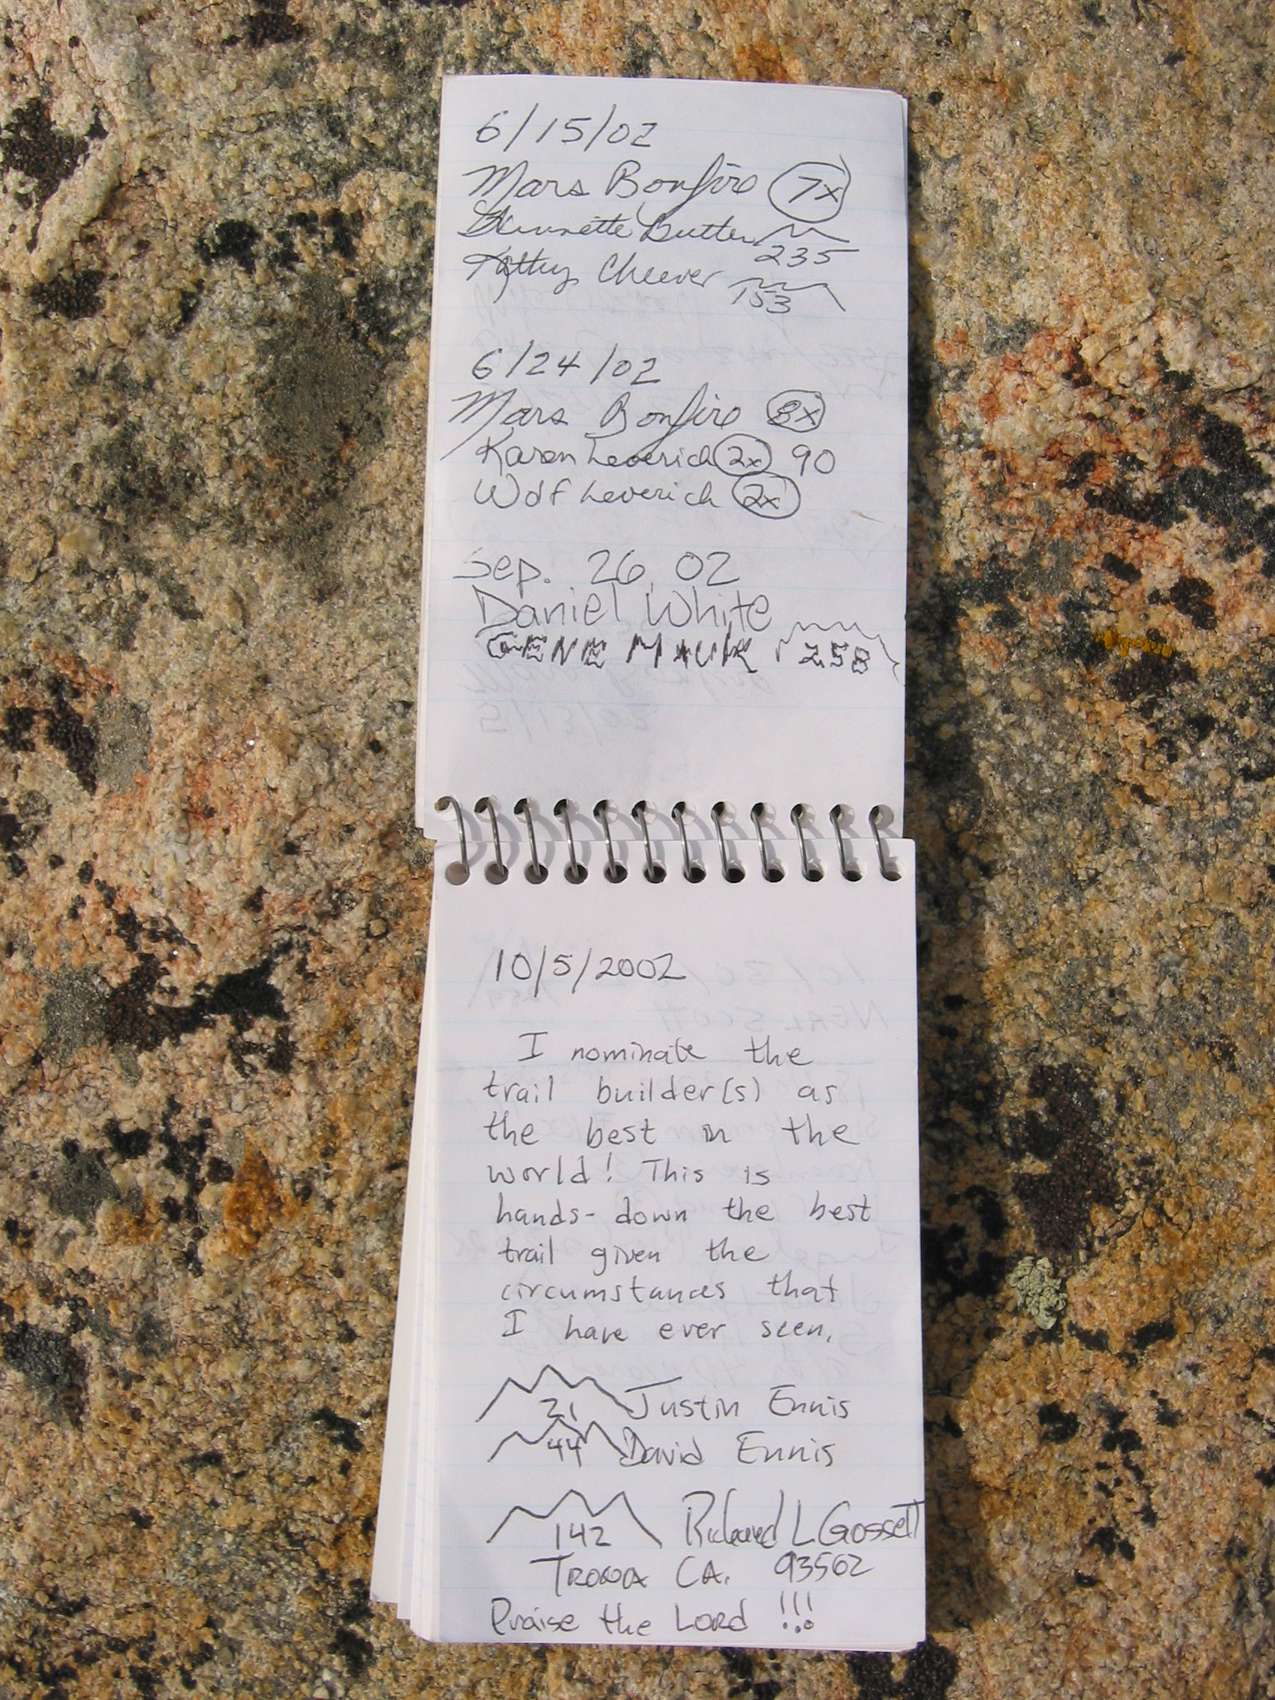 6/15/02
Mars Bonfire 7x
Butler
235
Kathy Cheever
153
6/24/02
Mars Bonfire 8x
Karen Leverich 2x 90
Wolf Leverich 2x
Sep. 26, 02
Daniel White
GENE MAUK 258
10/5/2002
I nominate the
trail builder(s) as
the best in the
world! This is
hands-down the best
trail given the
circumstances that
I have ever seen.
21 Justin Ennis
44 David Ennis
142 Richard L Gossett
CA. 93562
Praise the Lord !!!